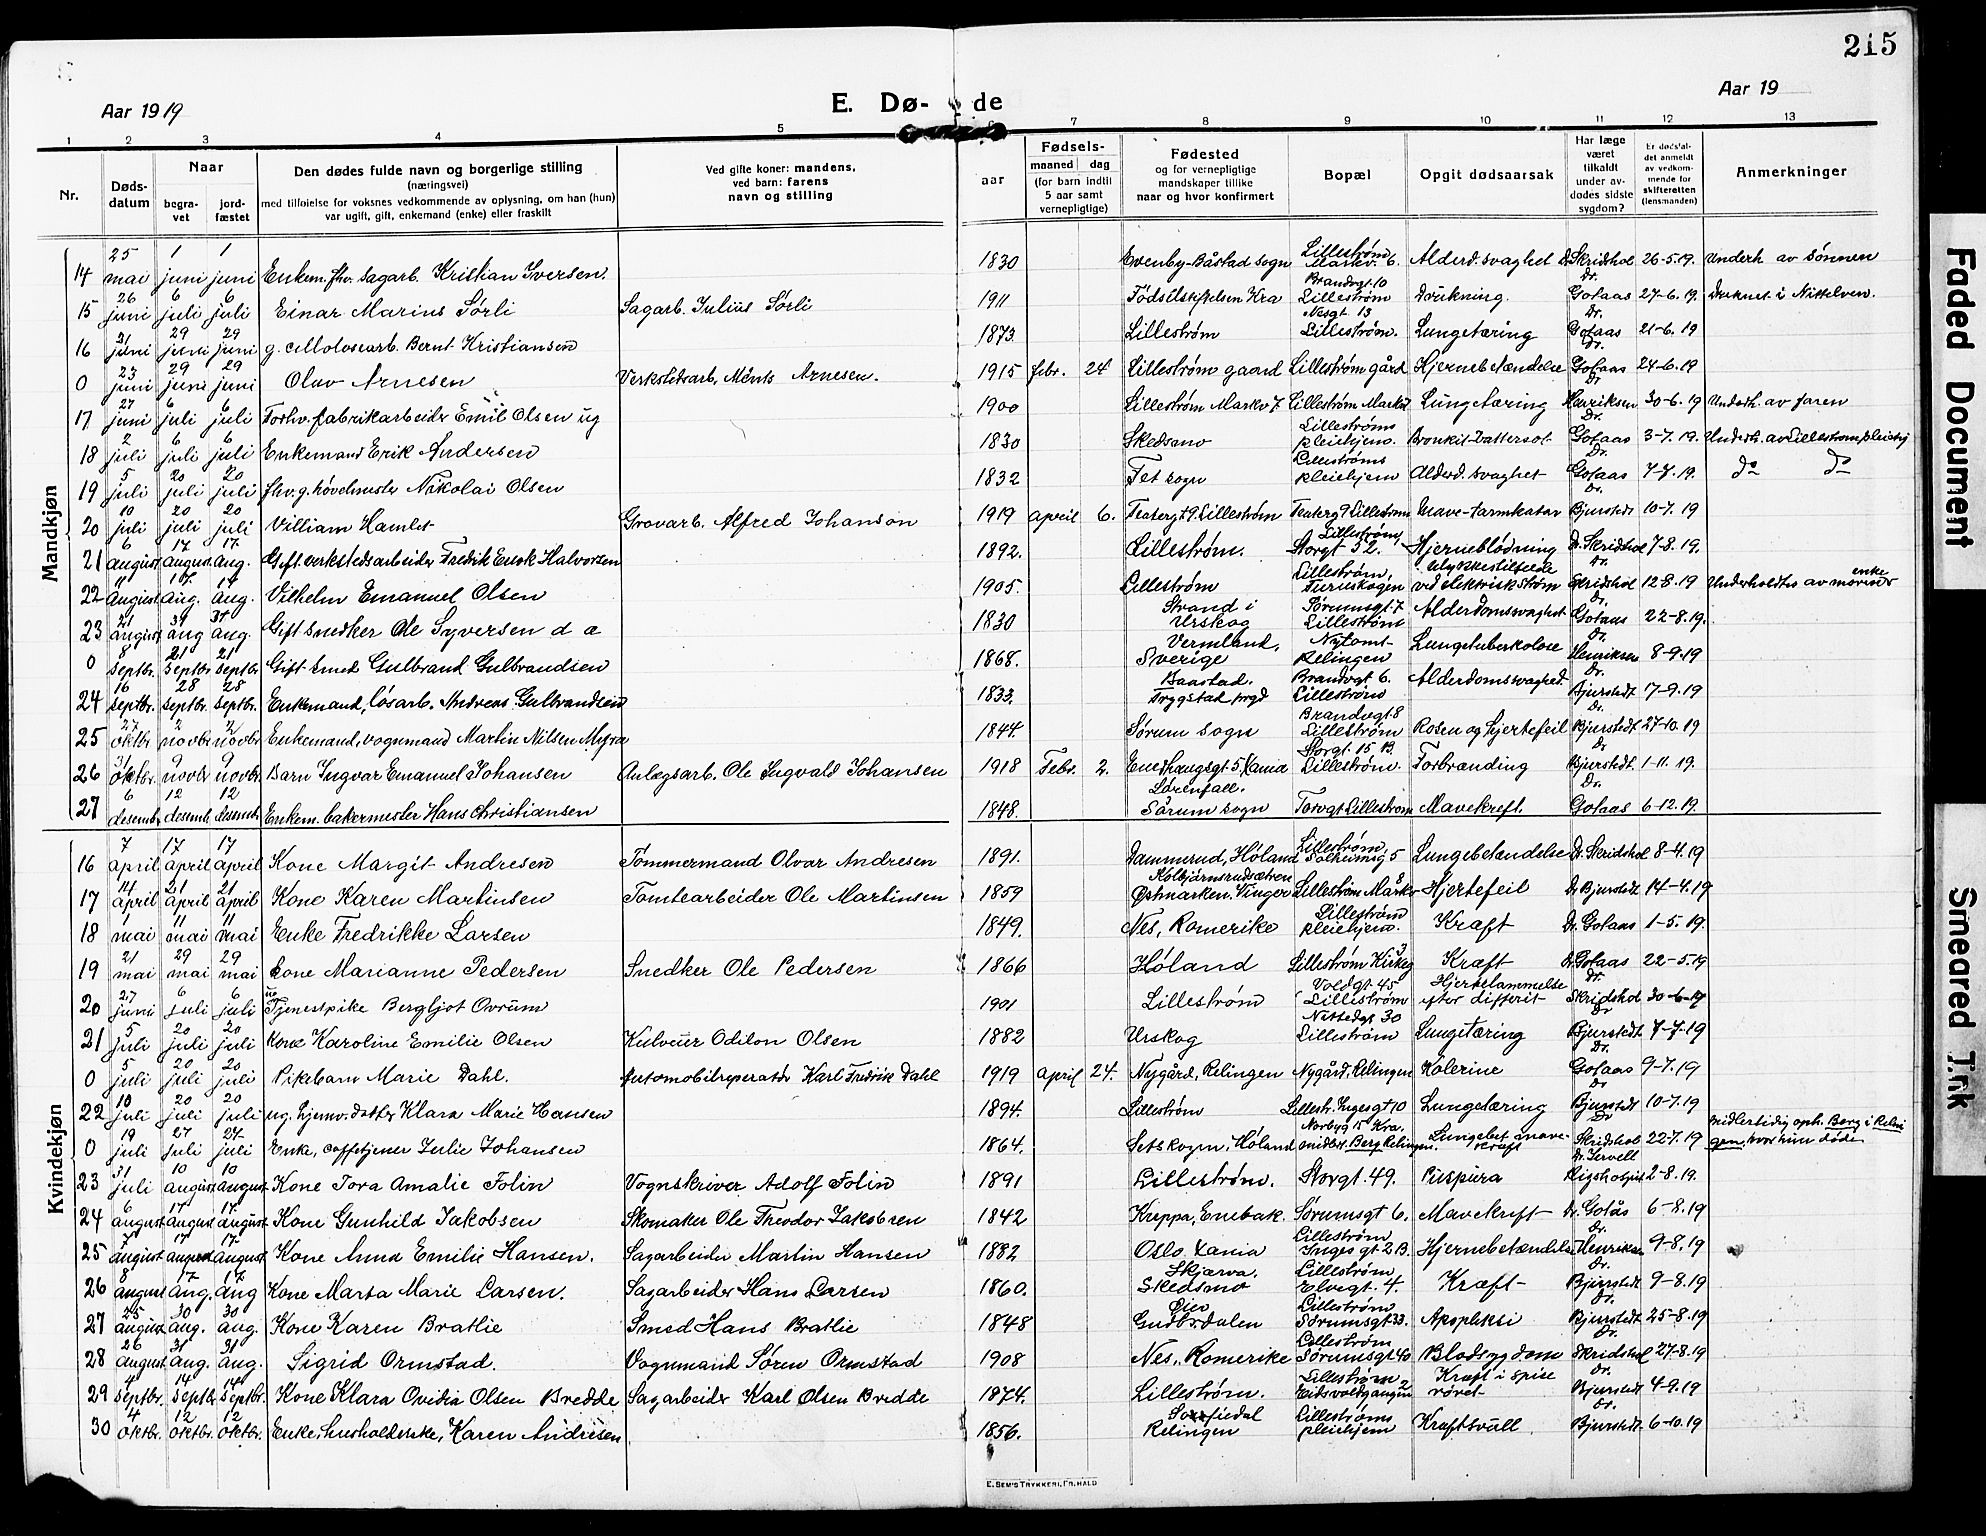 215
Aar 1919
E. Dø- de
Aar 19
1 2 3 4 5 6 7 8 9 10 11 12 13
Nr.
Døds-datum
Naar
begra-vet
jord-fæstet
Den dødes fulde navn og borgerlige stilling
(næringsvei)
med tilføielse for voksnes vedkommende av oplysning, om han (hun)
var ugift, gift, enkemand (enke) eller fraskilt
Ved gifte koner: mandens,
ved barn: farens
navn og stilling
aar
Fødsels-
maaned dag
(for barn indtil
5 aar samt
vernepligtige)
Fødested
og for vernepligtige
mandskaper tillike
naar og hvor konfirmert
Bopæl
Opgit dødsaarsak
Har læge
været
tilkaldt
under av-
dødes sidste
sygdom?
Er dødsfal-
det anmeldt
av vedkom-
mende for
skifteretten
(lensmanden)
Anmerkninger
Mandkjøn
14 25 mai 1 juni 1 juni Enkem. fhv. sagarb. Kristian Iversen. 1830 Båstad sogn Lillestrøm Markv. 6. Alderd. svaghet Dr. Skridshol 26-5.19. Underh av sønnen
15 26 juni 6 juli 6 juli Einar Marius Sørli Sagarb. Julius Sørli 1911 Fødselsstiftelsen Kra Brandvgt 10 Lillestrøm Drukning. Dr. Gotaas 27-6.19. Druknet i Nittelven.
16 21 juni 29 juni 29 juni g. cellulosearb. Bernt Kristiansen 1873 Lillestrøm Nesgt 13 Lillestrøm. Lungetæring Dr. Gotaas 21-6.19
0 23 juni 29 juni 29 juni Olav Arnesen Verkstedsarb. Arnesen. 1915 febr. 24 Lillestrøm gaard Lillestrøm gård Hjernebetændelse Dr. Gotaas 24-6.19
17 27 juni 6 juli 6 juli Forhv. fabrikarbeider Emil Olsen ug 1900 Lillestrøm Markv 7. Lillestrøm Lungetæring Dr. Henriksen 30-6.19 Underh. av faren
18 2 juli 6 juli 6 juli Enkemand Erik Andersen 1830 Skedsmo Lillestrøms pleiehjem. Dr. Gotaas 3-7.19. Underh. av Lillestrøm pleiehj
19 5 juli 20 juli 20 juli fhv. g. Nikolai Olsen 1832 Fet sogn Lillestrøms pleiehjem Alderd. svaghet Dr. Gotaas 7-7.19. do do
20 10 juli 20 juli 20 juli Villiam Hamlet Grovarb. Alfred Johanson 1919 april 6. Teatergt 9. Lillestrøm Teaterg 9 Lillestrøm Mave-tarmkatar Dr. Bjurstedt 10-7.19
21 6 august 17 august. 17. aug. Gift. verkstedsarbeider Fredrik Enok Halvorsen 1892. Lillestrøm. Lillestrøm, Storgt 32. Hjerneblødning Dr. Skridshol 7-8.19.
22 11 august 17 aug. 17 aug. Vilhelm Emanuel Olsen 1905. Lillestrøm Lillestrøm, Furuskogen Ulykkestilfælde ved elektrisk strøm Dr. Skridshol 12-8.19 Underholdtes av moren enke
23 21 august 31 aug 31 aug. Gift snedker Ole Syversen d a 1830 Strand i Urskog Sørumsgt 7 Lillestrøm Alderdomssvaghet Dr. Gotaas 22-8.19.
0 8 septbr. 21 septbr 21 septbr. Gift Smed Gulbrand Gulbrandsen 1868. Vermland, Sverige Relingen Lungetuberkolose Dr. Henriksen 8-9.19
24 16 septbr. 28 septbr. 28 septbr. Enkemand, løsarb. Andreas Gulbrandsen 1833. Baastad. Trygstad prgd Brandvgt 6. Lillestrøm Alderdomssvaghed. Dr. Bjurstedt. 17-9.19
25 27 oktbr. 2 novbr 2 novbr Enkemand, vognmand Martin Nilsen Myra 1844 Sørum sogn Brandvgt 8 Lillestrøm Rosen og hjertefeil Dr. Bjurstedt 27-10.19
26 31 oktbr. 9 novbr 9 novbr. Barn Ingvar Emanuel Johansen Anlægsarb. Ole Ingvald Johansen 1918 Febr. 2. Enerhaugsgt 5, Xania Storgt. 15 B. Lillestrøm. Forbrænding Dr. Bjurstedt. 1-11.19.
27 6 desembr 12 desemb. 12 desemb. Enkem. bakermester Hans Christiansen 1848. Sørum sogn Torvgt Lillestrøm Mavekreft. Dr. Gotaas 6-12.19
Kvindekjøn
16 7 april 17 april 17 april Kone Margit Andresen Tømmermand Olvar Andresen 1891. Dammerud, Høland Lillestrøm, Solheimsg 5 Lungebetændelse Dr. Skridshol 8-4.19
17 14 april 21 april 21 april Kone Karen Martinsen Tomtearbeider Ole Martinsen 1859 Kolbjørnsrudsætren Østmarken. Vinger Lillestrøm Markv 8 Hjertefeil Dr Bjurstedt 14-4.19
18 1 mai 11 mai 11 mai Enke Fredrikke Larsen 1849. Nes, Romerike Lillestrøm pleiehjem. Kræft Dr. Gotaas 1-5.19.
19 21 mai 29 mai 29 mai Kone Marianne Pedersen Snedker Ole Pedersen 1866 Høland Lillestrøm Kirkeg 3 Kræft Dr. Gotaas 22-5.19
20 27 juni 6 juli 6 juli ug Tjenestpike Bergljot Ovrum 1901 Lillestrøm Voldgt 45 Lillestrøm Hjertelammelse efter difterit Dr. Skridshol 30-6-19
21 5 juli 20 juli 20 juli Kone Karoline Emilie Olsen Odilon Olsen 1882 Urskog Nittedgt 30 Lillestrøm Lungetæring Dr Bjurstedt 7-7.19
0 5 juli 20 juli 20 juli Pikebarn Marie Dahl. Automobilreperatør Karl Fredrik Dahl 1919 april 24. Nygård, Relingen Nygård, Relingen Kolerine Dr. Gotaas 9-7.19
22 10 juli 20 juli 20 juli ug. hjemv. datter Klara Marie Hansen 1894. Lillestrøm Lillestr. Ingesgt 10 Lungetæring Dr Bjurstedt 10-7.19
0 19 juli 27 juli 27 juli Enke, Julie Johansen 1864. Setskogn, Høland Norbyg 15 Kra. midlert. Berg Relingen. Lungebet. mave-kræft Dr Skridshol 22-7.19 midlertidig oph. Berg i Relingen, hvor hun døde
23 31 juli 10 august 10 august. Kone Tora Amalie Folin Vognskriver Adolf Folin 1891 Lillestrøm. Storgt. 49. Puspura Dr. Rigshospit 2-8.19.
24 6 august 17 august. 17. august Kone Gunhild Jakobsen Skomaker Ole Theodor Jakobsen 1842 Kreppa, Enebak. Sørumsgt 6. Mavekreft Dr. Gotås 6-8.19
25 7 august 17 august 17. august. Kone Anna Emilie Hansen. Sagarbeider Martin Hansen 1882 Oslo, Xania Lillestrøm Inges gt 2 B. Hjernebetændelse Dr. Henriksen 9-8.19
26 8 august 17 aug. 17 aug Kone Marta Marie Larsen. Sagarbeider Hans Larsen 1860. Skjærva. Skedsmo Lillestrøm, Elvegt. 4. Kræft Dr. Bjurstedt 9-8.19
27 25 august 30 aug. 30 aug. Kone Karen Bratlie Smed Hans Bratlie 1848 Øier Gudbrdalen Lillestrøm Sørumsgt 33. Apopleksi Dr. Bjurstedt 25-8.19
28 26 august 31 aug. 31 aug. Sigrid Ormstad. Vognmand Søren Ormstad 1908 Nes, Romerike Lillestrøm Sørumsgt 40 Blodsygdom Dr. Skridshol 27-8.19
29 4 septbr. 14 septbr. 14 septbr. Kone Klara Ovidia Olsen Bredde Sagarbeider Karl Olsen Bredde 1874. Lillestrøm. Lillestrøm Eidsvoldgangen 2 Kræft i spise røret Dr. Bjurstedt 4-9.19
30 4 oktbr. 12 oktbr. 12 oktbr. Enke, husholderske, Karen Andresen 1856. Relingen Lillestrøms pleiehjem Kræftsvull. Dr. Bjurstedt 6-10.19
E. SEM'S TRYKKERI, FR.HALD
Faded Document
Smeared Ink